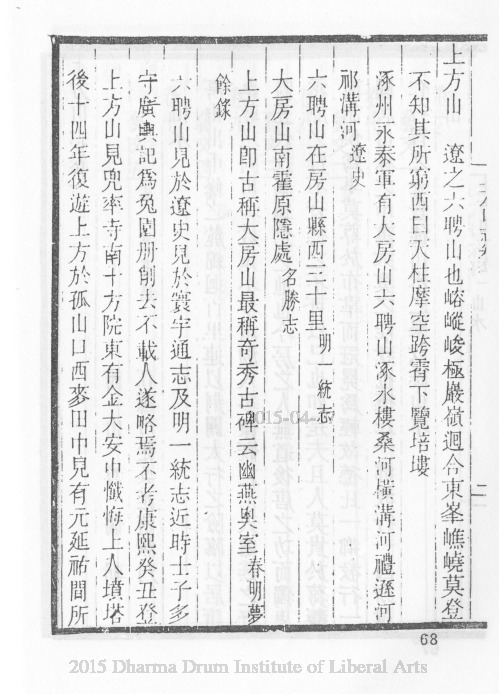 上方山　遼之六聘山也嵱嵷峻極巖嶺迴合東峯巍嶢莫登
不知其所窮西曰天柱摩空跨霄下覽培塿
涿州永泰軍有大房山六聘山涿水樓桑河橫溝河禮遜河
祁溝河遼史
六聘山在房山縣西三十里明一統志
大房山南霍原隱處名勝志
上方山卽古稱大房山最稱奇秀古碑云幽燕奥室春明夢
餘錄
六聘山見於遼史見於寰宇通志及明一統志近時士子多
守廣輿記爲兔園册削去不載人遂略焉不考康熙癸丑登
上方山見兜率寺南十方院東有金大安中懺悔上人墳塔
後十四年復遊上方於孤山口西麥田中見有元延祐間所
68
2015-04-
2015 Dharma Drum Institute of Liberal Arts